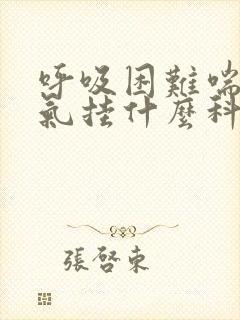 呼吸困難喘
氣挂什麼科
張啓東